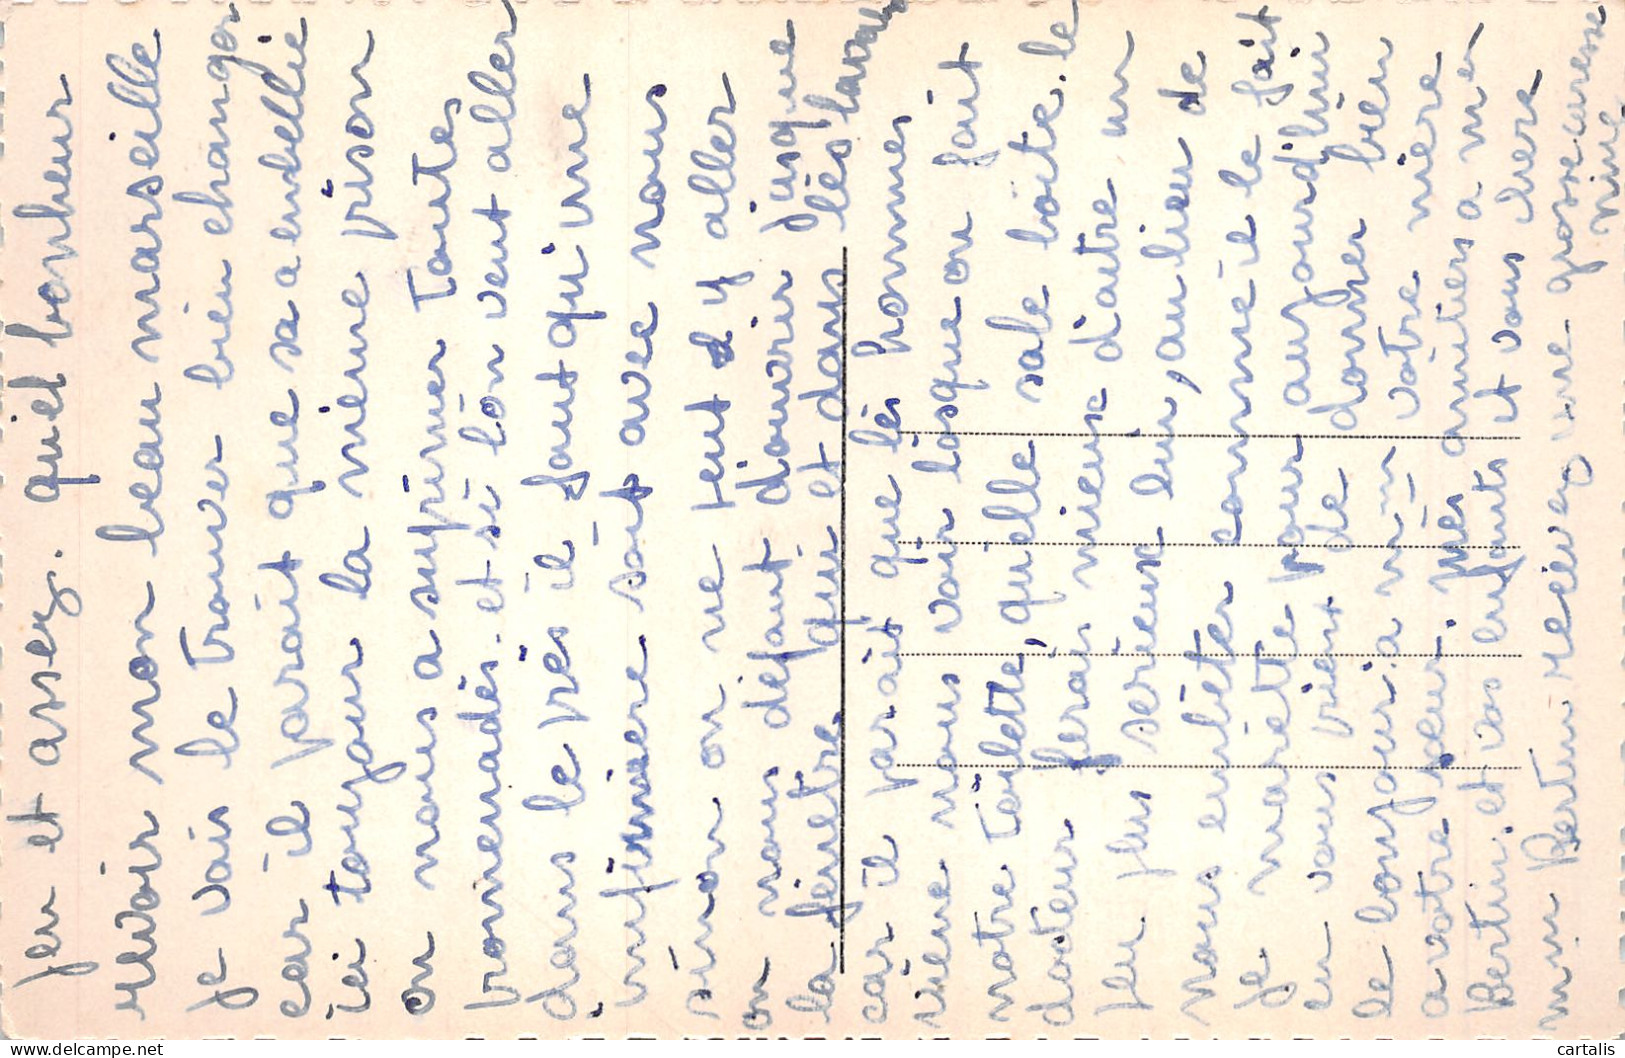 jen et assez. quel bonheur
revoir mon beau marseille
je vais le trouver bien changer
car il parait que sa a embellie
ici toujour la mieme prison
on nous a suprimer toutes
promenades. et si lon veut aller
dans le prés il faut qu'une
infirmiere soit avec nous
sinon on ne peut y aller
on nous défaut d'ouvrir jusque
la fenetre qui et dans les lavabos
car il parait que les hommes
viene nous voir losque on fait
notre toilette, quelle sale boite. le
docteur ferais mieux d'autre un
peu plus serieux lui, au lieu de
nous enbéter comme il le fait
je m'arette pour aujourd'hui
en vous prient de donner bien
le bonjour a mm votre miere
a votre seur. mes amitiers a mer
Bertin. et vos enfants et vous chere
mm Bertin recevez une grosse caresse
Mimi
cartalis